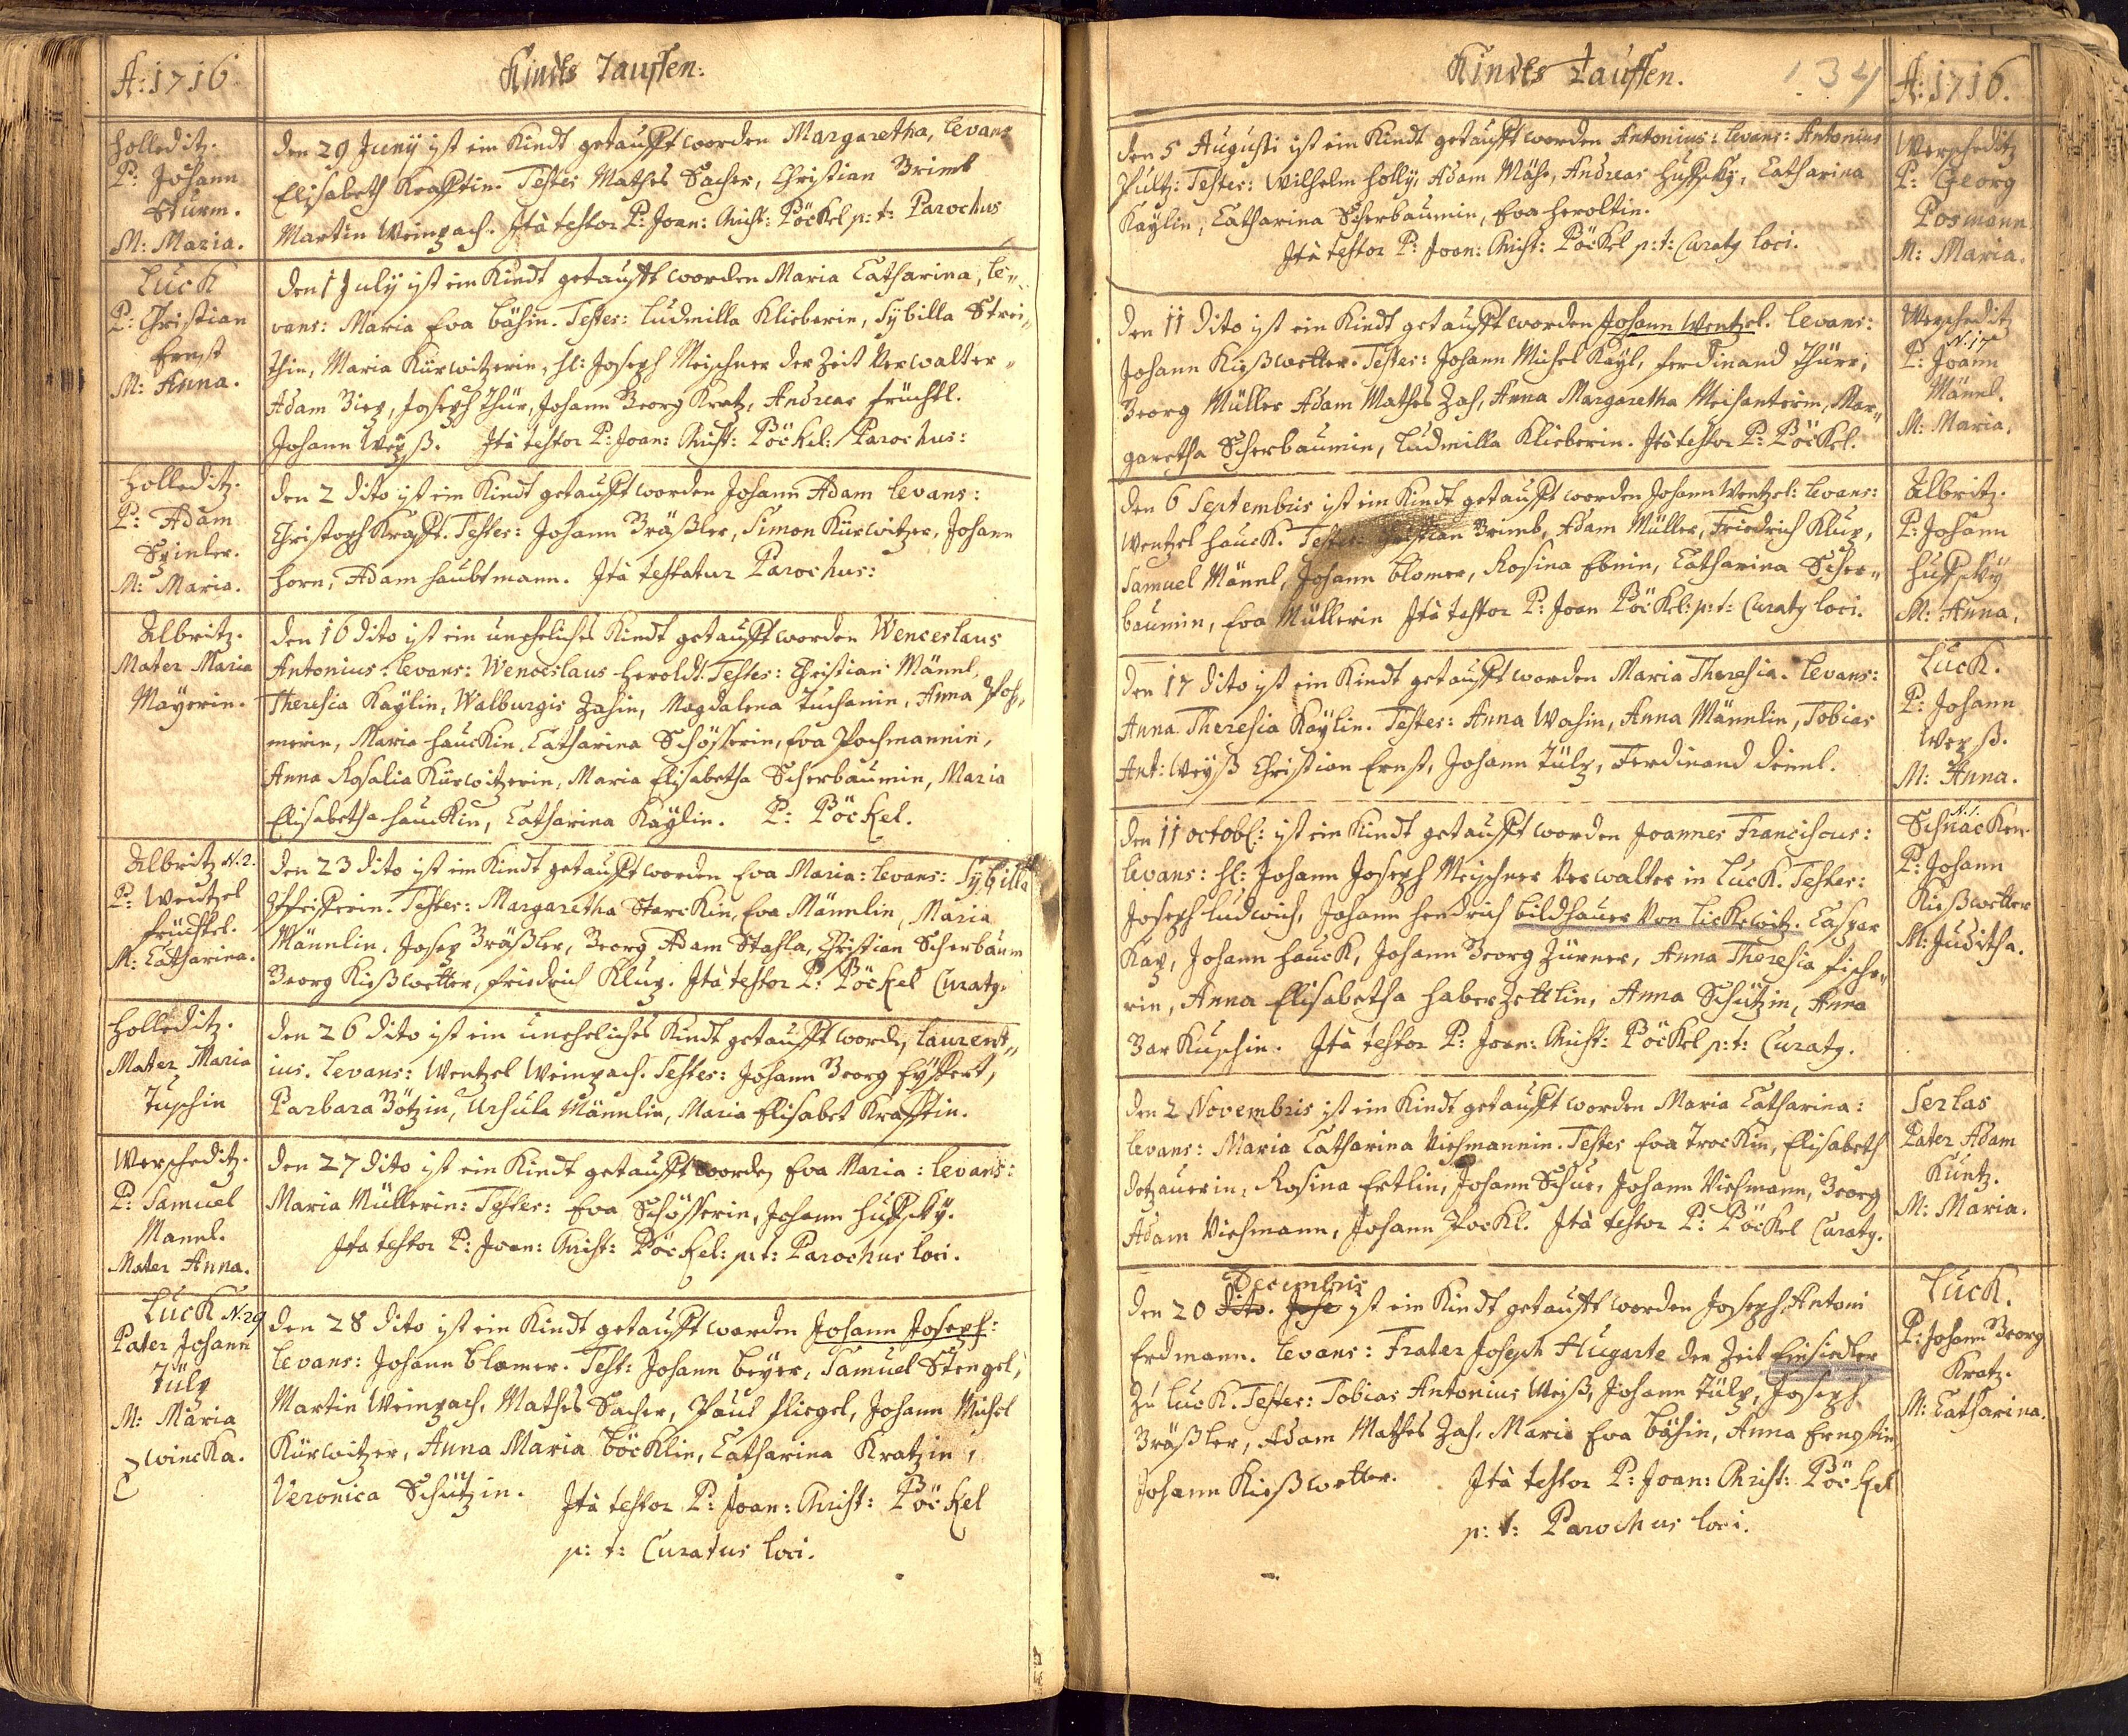 A: 1716
Kindts Tauffen:
Holleditz.
P: Johann
Sturm.
M: Maria.
den 29 Juny ist ein Kindt getaufft worden Margaretha, levans
Elisabeth Krafftin. Testes Mathes Sacher, Christian Grimb
Martin Weinzach. Ità testor P: Joan: Christ: Böckel p: t: Parochus
Luck
P: Christian
Ernst
M: Anna.
den 1 July ist ein Kindt getaufft worden Maria Catharina, le„
vans: Maria Eva Bähin. Testes: Ludmilla Klieberin, Sybilla Strei„
chin, Maria Kürwitzerin, Hl: Joseph Meischner der Zeit Verwalter„
Adam Joseph Thür, Johann Georg Kratz, Andreas Früchtl.
Johann Weyß. Ità testor P: Joan: Christ: Böckel: Parochus:
Holleditz.
P: Adam
M: Maria.
den 2 dito ist ein Kindt getaufft worden Johann Adam levans:
Christoph Krafft. Testes: Johann Gräßler, Simon Kürwitzer, Johann
Horn, Adam Haubtmann. Ità testatur Parochus:
Albritz.
Mater Maria
Mayerin.
den 16 dito ist ein uneheliches Kindt getaufft worden Wenceslaus
Antonius. levans: Wenceslaus Heroldt. Testes: Christian Männl,
Theresia Kaylin, Walburgis Zahin, Magdalena Tuchanin, Anna
merin, Maria Hauckin, Catharina Schösserin, Eva Pochmannin,
Anna Rosalia Kürwitzerin, Maria Elisabetha Scherbaumin, Maria
Elisabetha Hauckin, Catharina Kaylin. P: Böckel.
Albritz N. 2.
P: Wentzel
Früchtel.
M: Catharina.
den 23 dito ist ein Kindt getaufft worden Eva Maria: levans: Sybilla
Testes: Margaretha Starckin, Eva Männlin, Maria
Männlin, Josep Gräßler, Georg Adam Stahla, Christian Scherbaum
Georg Kießwetter, Friedrich Klug. Ità testor P: Böckel Curatg.
Holleditz.
Mater Maria
Tuschin
den 26 dito ist ein uneheliches Kindt getaufft worden, Laurent„
ius. Levans: Wentzel Weinzach. Testes: Johann Georg
Barbara Götzin, Ursula Männlin, Maria Elisabet Krafftin.
Werscheditz.
P: Samuel
Manl.
Mater Anna.
den 27 dito ist ein Kindt getaufft worden Eva Maria: levans:
Maria Müllerin: Testes: Eva Schösserin, Johann Hussky.
Ità testor P: Joan: Christ: Böckel: p: t: Parochus loci.
Luck N: 29
Pater Johann
Tülp
M: Maria
den 28 dito ist ein Kindt getaufft worden Johann Joseph:
levans: Johann Blomer. Test: Johann Beyer, Samuel Stengel,
Martin Weinzach, Mathes Sacher, Paul Fliegel, Johann Michel
Kürwitzer, Anna Maria Böcklin, Catharina Kratzin,
Veronica Schützin. Ità testor P: Joan: Christ: Böckel
p: t: Curatus loci.
Kindts Tauffen.
134
A: 1716.
den 5 Augusti ist ein Kindt getaufft worden Antonius: levans: Antonius
Pultz: Testes: Wilhelm Holly, Adam Mähr, Andreas Hussky, Catharina
Kaylin, Catharina Scherbaumin, Eva Heroltin.
Ità testor P: Joan: Christ: Böckel p: t: Curatg loci.
Werscheditz
P: Georg
Posmann
M: Maria.
den 11 dito ist ein Kindt getaufft worden Johann Wentzel. levans:
Johann Kießwetter. Testes: Johann Michel Kayl, Ferdinand Thürr,
Georg Müller Adam Mathes Zah, Anna Margaretha Meisanterin, Mar„
garetha Scherbaumin, Ludmilla Klieberin. Ità testor P: Böckel.
Werscheditz
N. 17
P: Joann
Männl.
M: Maria.
den 6 Septembris ist ein Kindt getaufft worden Johann Wentzel: levans:
Wentzel Hauck. Testes: Christian Grimb, Adam Müller, Friedrich Klug,
Samuel Männl, Johann Blomer, Rosina Ebnin, Catharina Scher„
baumin, Eva Müllerin Ità testor P: Joan Böckel: p: t: Curatg loci.
Albritz.
P: Johann
Hussky
M: Anna.
den 17 dito ist ein Kindt getaufft worden Maria Theresia. levans:
Anna Theresia Kaylin. Testes: Anna Wachin, Anna Männlin, Tobias
Ant: Weyß Christian Ernst, Johann Tülp, Ferdinand
Luck.
P: Johann
Weyß.
M: Anna.
den 11 octobr: ist ein Kindt getaufft worden Joannes Franciscus:
levans: Hl: Johann Joseph Meischner Verwalter in Luck. Testes:
Joseph Ludwich, Johann Hendrich Bildhauer von Lickewitz. Caspar
Kaz, Johann Hauck, Johann Georg Zürner, Anna Theresia Fische„
rin, Anna Elisabetha Haberzettlin, Anna Schützin, Anna
Ità testor P: Joan: Christ: Böckel p: t: Curatg.
N. 1.
Schnacken
P: Johann
Kießwetter
M: Juditha.
den 2 Novembris ist ein Kindt getaufft worden Maria Catharina:
levans: Maria Catharina Viehmannin. Testes Eva Trockin, Elisabeth
Dotzauerin, Rosina Ertlin, Johann Schus, Johann Viehmann, Georg
Adam Viehmann, Johann Pockl. Ità testor P: Böckel Curatg.
Serlas
Pater Adam
Kuntz.
M: Maria.
Decembris
den 20 dito. Josep ist ein Kindt getaufft worden Joseph Antoni
Erdmann. levans: Frater Joseph Hugarte der Zeit Einsiedler
zu Luck. Testes: Tobias Antonius Weiß, Johann Tülp, Joseph
Gräßler, Adam Mathes Zah, Maria Eva Bähin, Anna Ernstin
Johann Kießwetter. Ità testor P: Joan: Christ: Böckel
p: t: Parochus loci.
Luck.
P: Johann Georg
Kratz.
M: Catharina.